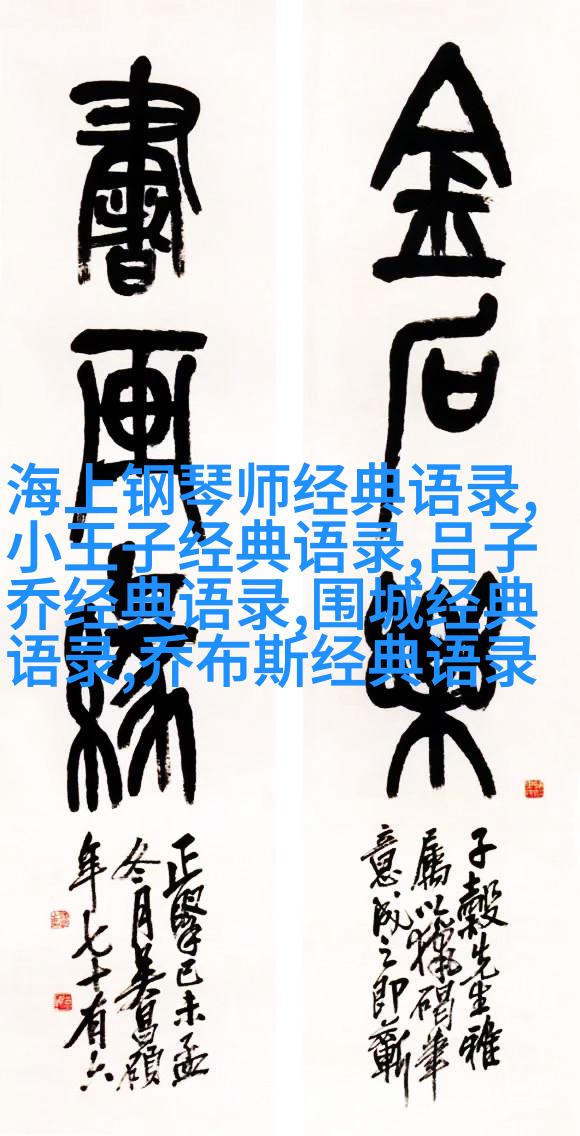 金石樂
子穀先生雅
屬以獵碣筆
意成之即蘄
書画緣
正己未孟
冬月吴昌碩
年七十有六
海上钢琴师经典语录,
小王子经典语录,吕子
乔经典语录,围城经典
语录,乔布斯经典语录